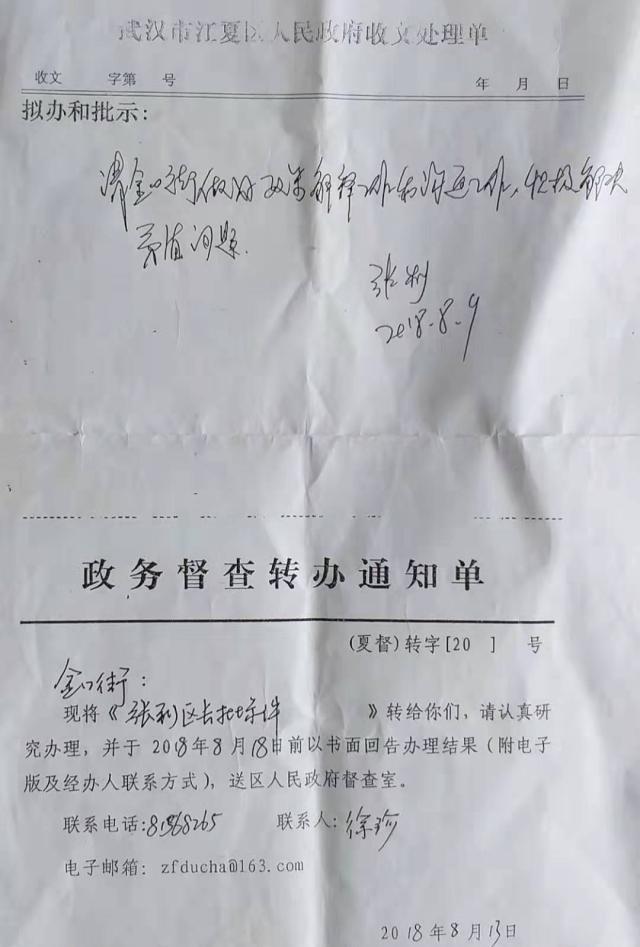 武汉市江夏区人民政府收文处理单
收文 字第 号 年 月 日
拟办和批示：
请金口街做好政策解释工作和沟通工作，积极解决
矛盾问题.
张利
2018.8.9
政务督查转办通知单
(夏督)转字[20 ] 号
金口街：
现将《张利区长批示件 》转给你们，请认真研
究办理，并于2018年8月18日前以书面回告办理结果(附电子
版及经办人联系方式)，送区人民政府督查室。
联系电话:81568265 联系人:徐珍
电子邮箱: zfducha@163.com
2018年8月13日